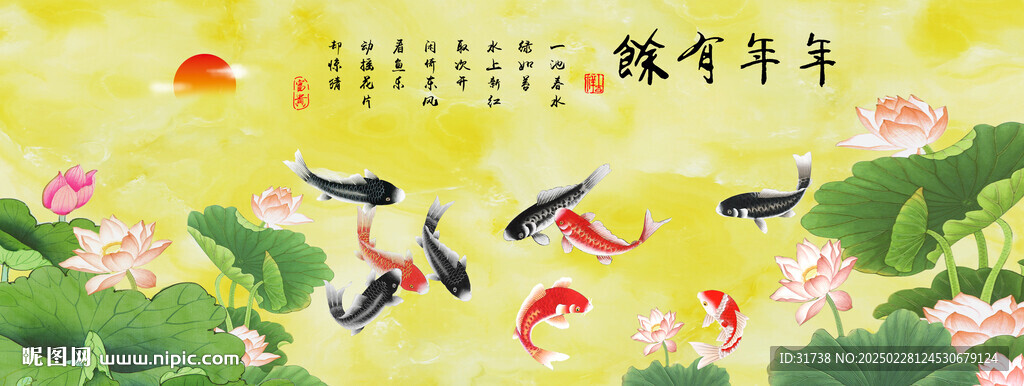 年年有餘
一池春水
绿如苔
水上新红
取次开
闲倚东风
看鱼乐
动摇花片
却惊猜
昵图网 www.nipic.com
ID:31738 NO:20250228124530679124